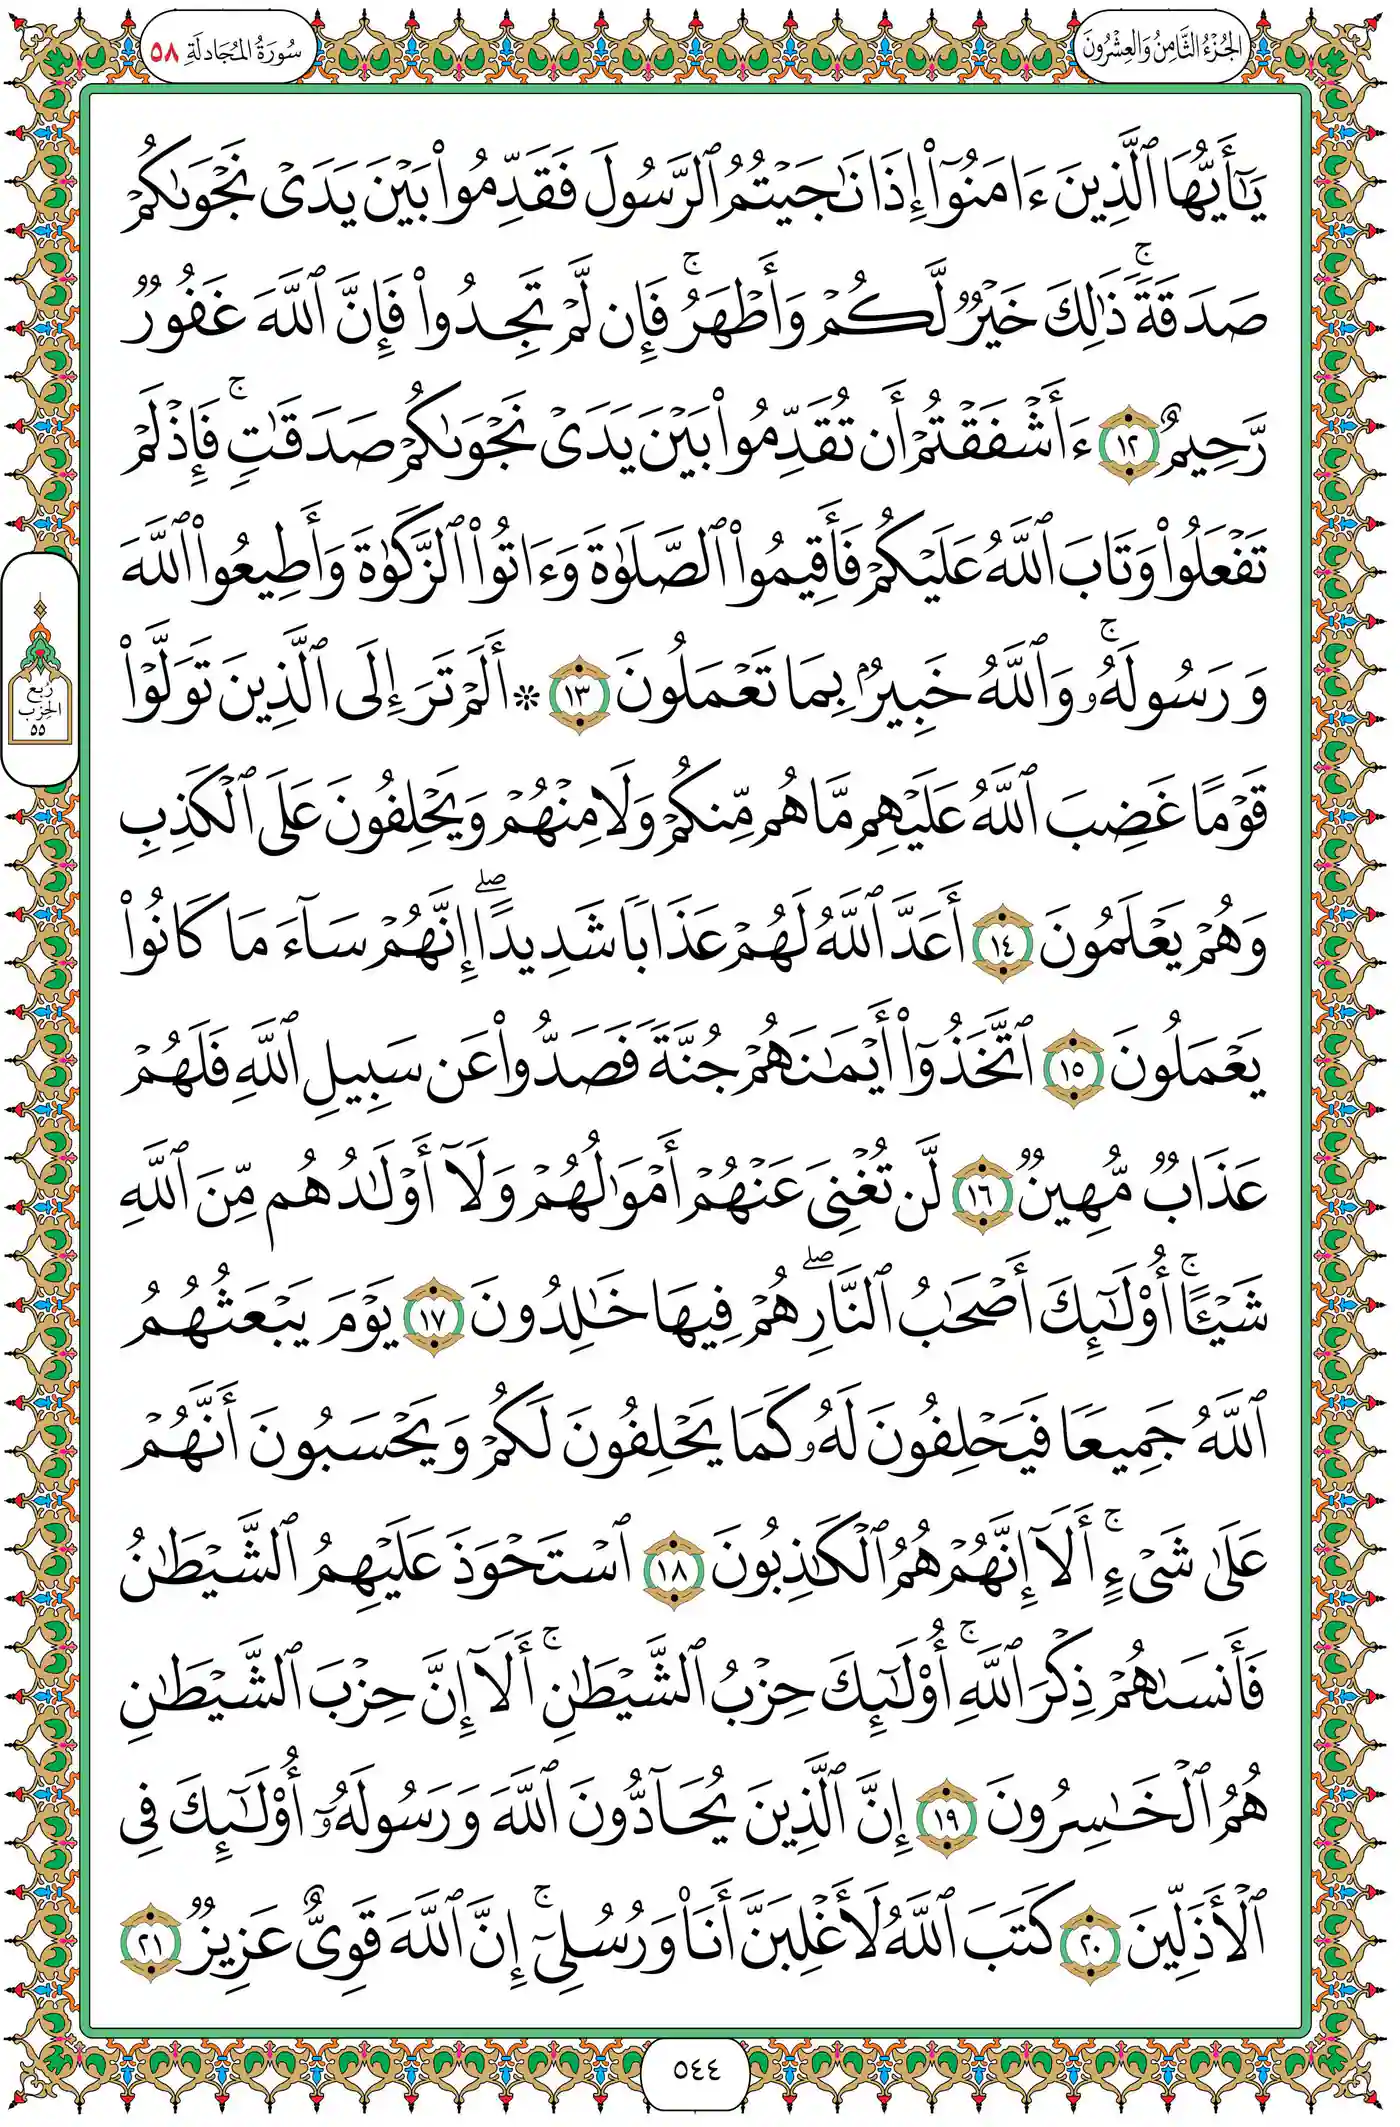 الجُزْءُ الثَّامِنُ وَالعِشْرُونَ
سُورَةُ المُجَادلَةِ ٥٨
يَٰٓأَيُّهَا ٱلَّذِينَ ءَامَنُوٓا۟ إِذَا نَٰجَيْتُمُ ٱلرَّسُولَ فَقَدِّمُوا۟ بَيْنَ يَدَىْ نَجْوَىٰكُمْ
صَدَقَةًۚ ذَٰلِكَ خَيْرٌ لَّكُمْ وَأَطْهَرُۚ فَإِن لَّمْ تَجِدُوا۟ فَإِنَّ ٱللَّهَ غَفُورٌ
رَّحِيمٌ ١٢ ءَأَشْفَقْتُمْ أَن تُقَدِّمُوا۟ بَيْنَ يَدَىْ نَجْوَىٰكُمْ صَدَقَٰتٍۚ فَإِذْ لَمْ
تَفْعَلُوا۟ وَتَابَ ٱللَّهُ عَلَيْكُمْ فَأَقِيمُوا۟ ٱلصَّلَوٰةَ وَءَاتُوا۟ ٱلزَّكَوٰةَ وَأَطِيعُوا۟ ٱللَّهَ
وَرَسُولَهُۥۚ وَٱللَّهُ خَبِيرٌۢ بِمَا تَعْمَلُونَ ١٣ ۞ أَلَمْ تَرَ إِلَى ٱلَّذِينَ تَوَلَّوْا۟
رُبع
الحِزْب
٥٥
قَوْمًا غَضِبَ ٱللَّهُ عَلَيْهِم مَّا هُم مِّنكُمْ وَلَا مِنْهُمْ وَيَحْلِفُونَ عَلَى ٱلْكَذِبِ
وَهُمْ يَعْلَمُونَ ١٤ أَعَدَّ ٱللَّهُ لَهُمْ عَذَابًا شَدِيدًاۖ إِنَّهُمْ سَآءَ مَا كَانُوا۟
يَعْمَلُونَ ١٥ ٱتَّخَذُوٓا۟ أَيْمَٰنَهُمْ جُنَّةً فَصَدُّوا۟ عَن سَبِيلِ ٱللَّهِ فَلَهُمْ
عَذَابٌ مُّهِينٌ ١٦ لَّن تُغْنِىَ عَنْهُمْ أَمْوَٰلُهُمْ وَلَآ أَوْلَٰدُهُم مِّنَ ٱللَّهِ
شَيْـًٔاۚ أُو۟لَٰٓئِكَ أَصْحَٰبُ ٱلنَّارِۖ هُمْ فِيهَا خَٰلِدُونَ ١٧ يَوْمَ يَبْعَثُهُمُ
ٱللَّهُ جَمِيعًا فَيَحْلِفُونَ لَهُۥ كَمَا يَحْلِفُونَ لَكُمْ وَيَحْسَبُونَ أَنَّهُمْ
عَلَىٰ شَىْءٍۚ أَلَآ إِنَّهُمْ هُمُ ٱلْكَٰذِبُونَ ١٨ ٱسْتَحْوَذَ عَلَيْهِمُ ٱلشَّيْطَٰنُ
فَأَنسَىٰهُمْ ذِكْرَ ٱللَّهِۚ أُو۟لَٰٓئِكَ حِزْبُ ٱلشَّيْطَٰنِۚ أَلَآ إِنَّ حِزْبَ ٱلشَّيْطَٰنِ
هُمُ ٱلْخَٰسِرُونَ ١٩ إِنَّ ٱلَّذِينَ يُحَآدُّونَ ٱللَّهَ وَرَسُولَهُۥٓ أُو۟لَٰٓئِكَ فِى
ٱلْأَذَلِّينَ ٢٠ كَتَبَ ٱللَّهُ لَأَغْلِبَنَّ أَنَا۠ وَرُسُلِىٓۚ إِنَّ ٱللَّهَ قَوِىٌّ عَزِيزٌ ٢١
٥٤٤